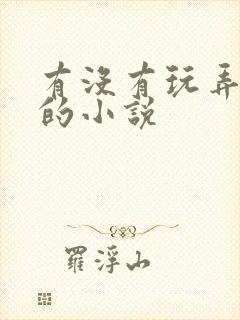 有没有玩弄
的小說
羅浮山